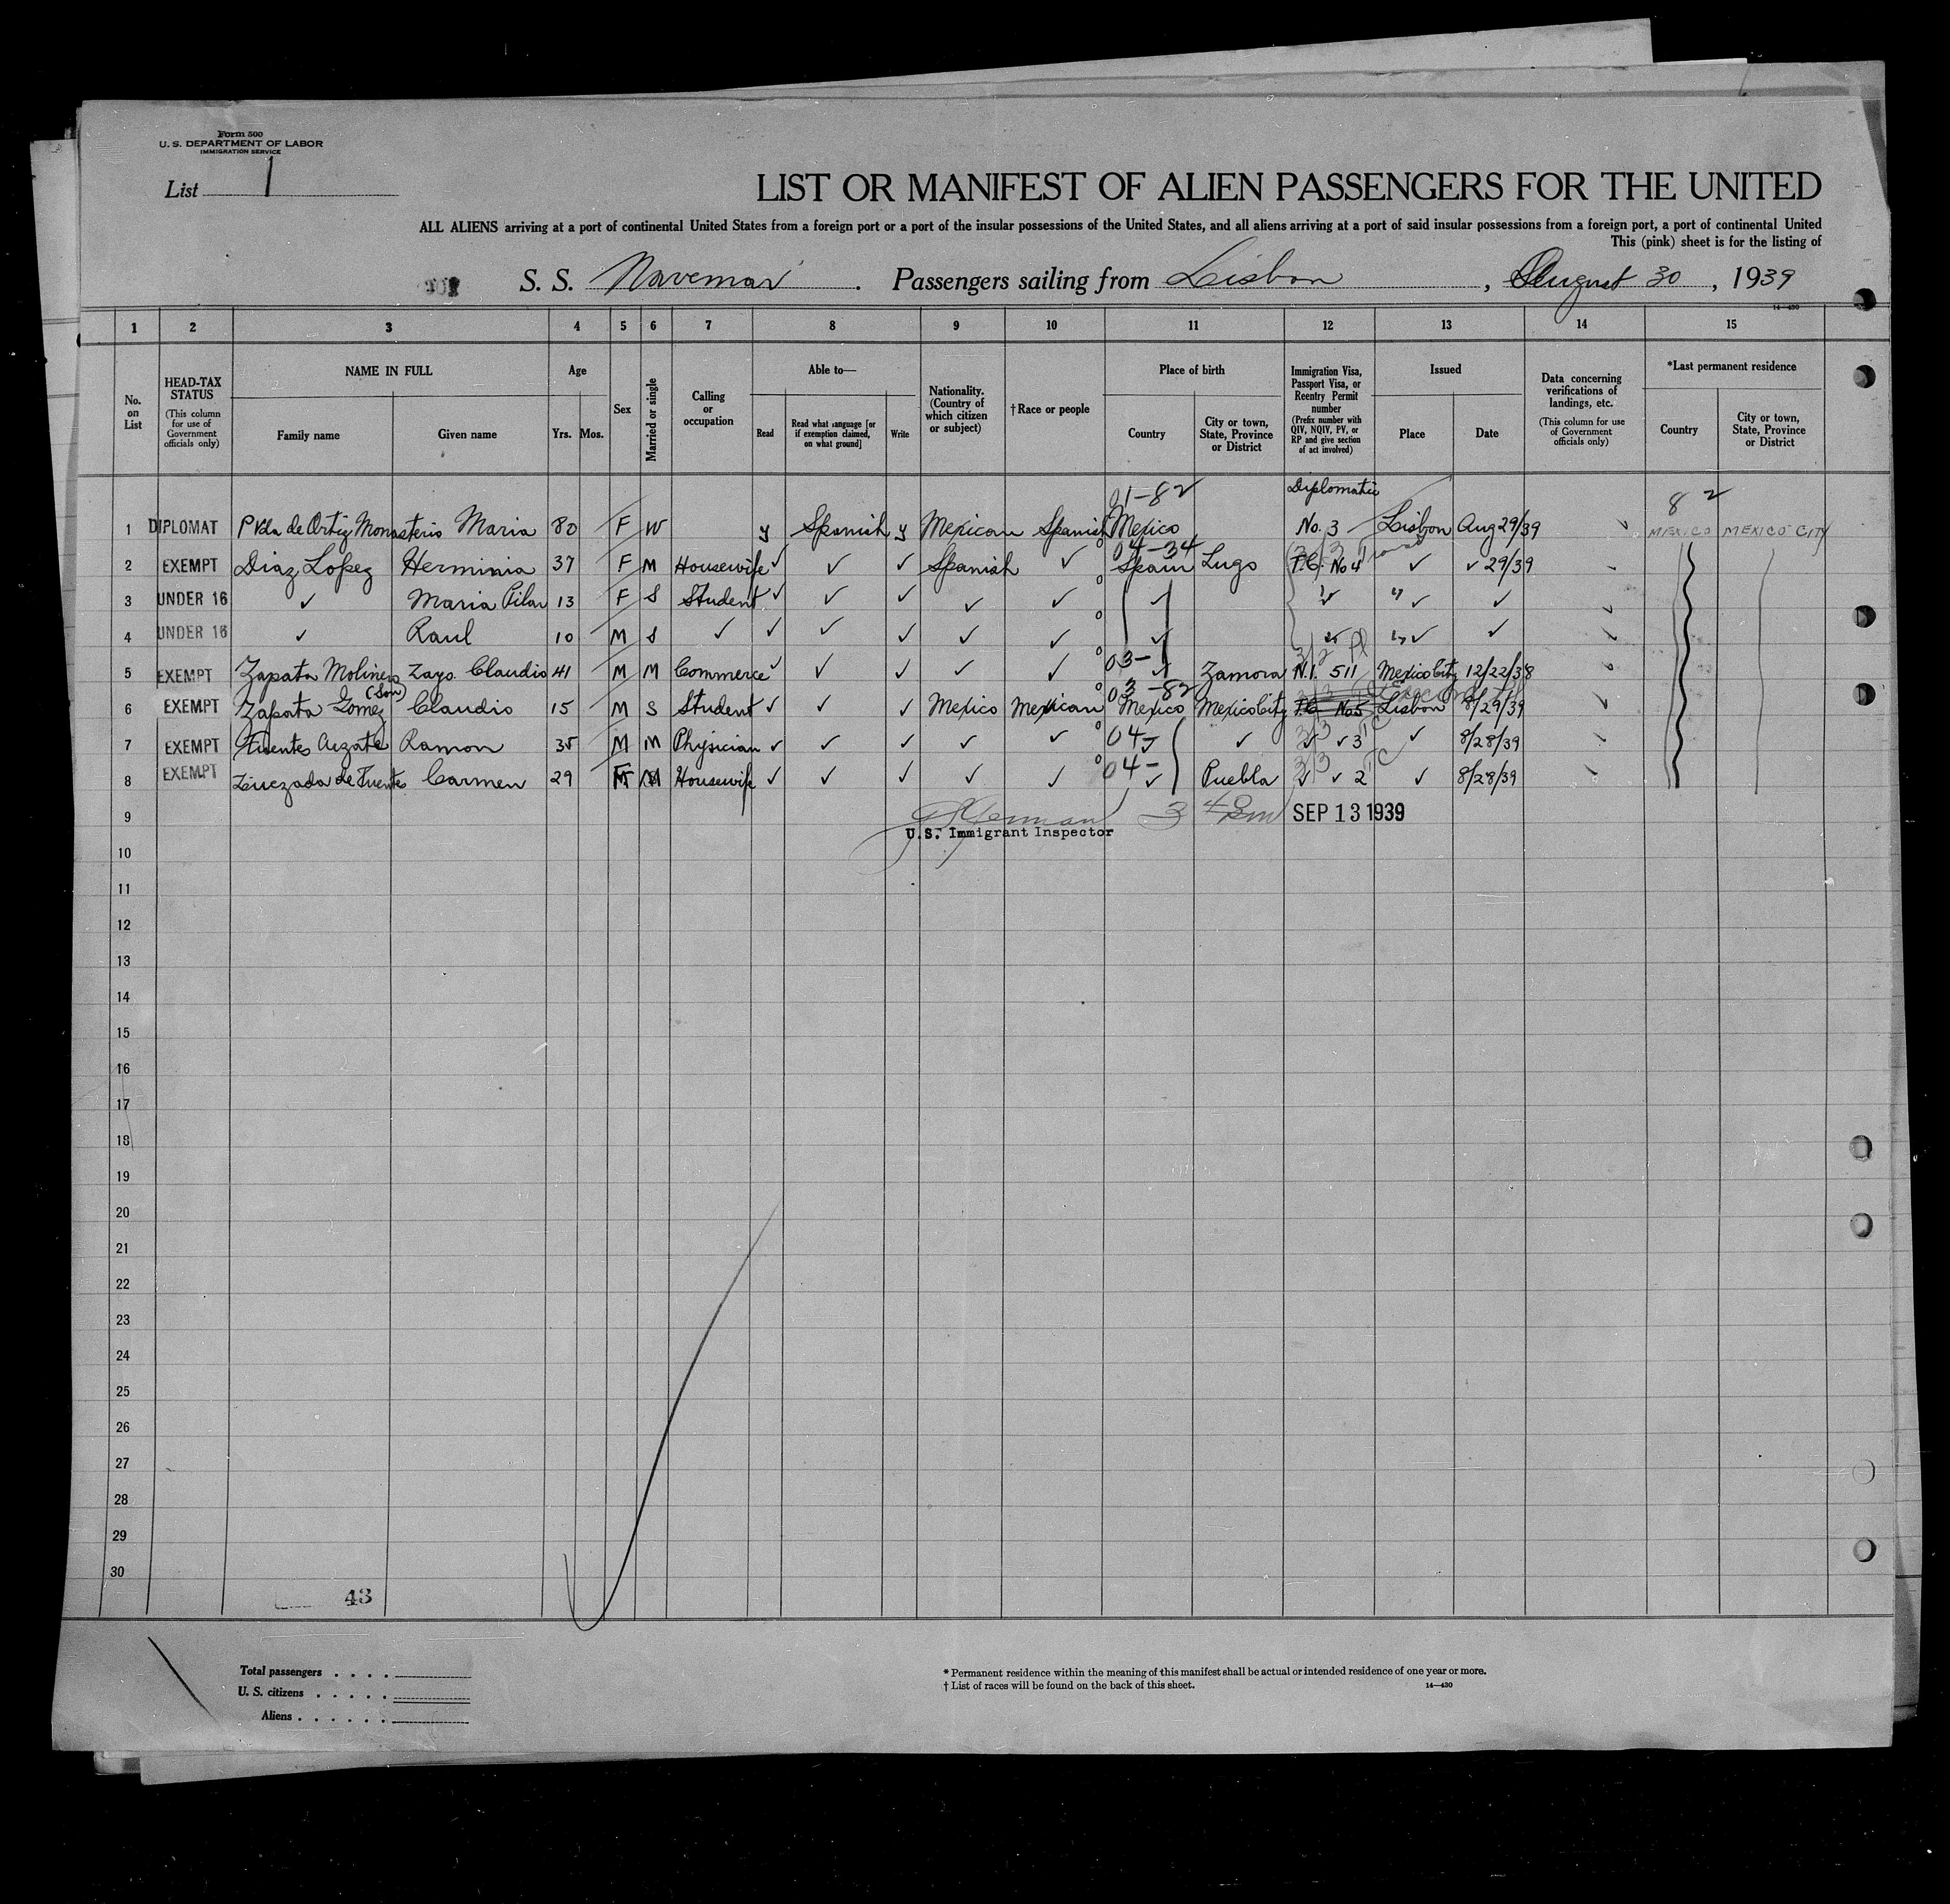 Form 500
U. S. DEPARTMENT OF LABOR
IMMIGRATION SERVICE
List 1
LIST OR MANIFEST OF ALIEN PASSENGERS FOR THE UNITED
ALL ALIENS arriving at a port of continental United States from a foreign port or a port of the insular possessions of the United States, and all aliens arriving at a port of said insular possessions from a foreign port, a port of continental United
This (pink) sheet is for the listing of
S. S. Navemar. Passengers sailing from Lisbon, August 30, 1939
14—430
1 2 3 4 5 6 7 8 9 10 11 12 13 14 15
No. on List
HEAD-TAX STATUS
(This column for use of Government officials only)
NAME IN FULL
Family name Given name
Age
Yrs. Mos.
Sex
Married or single
Calling or occupation
Able to—
Read
Read what language [or if exemption claimed, on what ground]
Write
Nationality. (Country of which citizen or subject)
†Race or people
Place of birth
Country
City or town, State, Province or District
Immigration Visa, Passport Visa, or Reentry Permit number
(Prefix number with QIV, NQIV, PV, or RP and give section of act involved)
Issued
Place Date
Data concerning verifications of landings, etc.
(This column for use of Government officials only)
*Last permanent residence
Country
City or town, State, Province or District
01-82 Diplomatic 82
1 DIPLOMAT de Ortiz Monasterio Maria 80 F W y Spanish y Mexican Spanish Mexico No. 3 Lisbon Aug 29/39 MEXICO MEXICO CITY
04-34 3/3
2 EXEMPT Diaz Lopez Herminia 37 F M Housewife ✓ ✓ ✓ Spanish ✓ Spain Lugo T.C. No 4 ✓ ✓ 29/39
3 UNDER 16 ✓ Maria Pilar 13 F S Student ✓ ✓ ✓ ✓ ✓ ✓ ✓ " ✓ ✓
4 UNDER 16 ✓ Raul 10 M S ✓ ✓ ✓ ✓ ✓ ✓ ✓ ✓ ✓
03- 3/2
5 EXEMPT Zapata Molinero Claudio 41 M M Commerce ✓ ✓ ✓ ✓ ✓ ✓ Zamora N.I. 511 Mexico City 12/22/38
(Son) 03-82 3/3
6 EXEMPT Zapata Gomez Claudio 15 M S Student ✓ ✓ ✓ Mexico Mexican Mexico Mexico City T.C. No 5 Lisbon 8/29/39
3/3 TC
7 EXEMPT Fuentes Ramon 35 M M Physician ✓ ✓ ✓ ✓ ✓ 04- ✓ ✓ ✓ ✓ 3 ✓ 8/28/39
3/3 TC
8 EXEMPT de Fuentes Carmen 29 F M Housewife ✓ ✓ ✓ ✓ ✓ 04- ✓ Puebla ✓ ✓ 2 ✓ 8/28/39
9 SEP 13 1939
U.S. Immigrant Inspector
10
11
12
13
14
15
16
17
18
19
20
21
22
23
24
25
26
27
28
29
30
43
Total passengers . . . .
U. S. citizens . . . . .
Aliens . . . . . .
* Permanent residence within the meaning of this manifest shall be actual or intended residence of one year or more.
† List of races will be found on the back of this sheet.
14—430